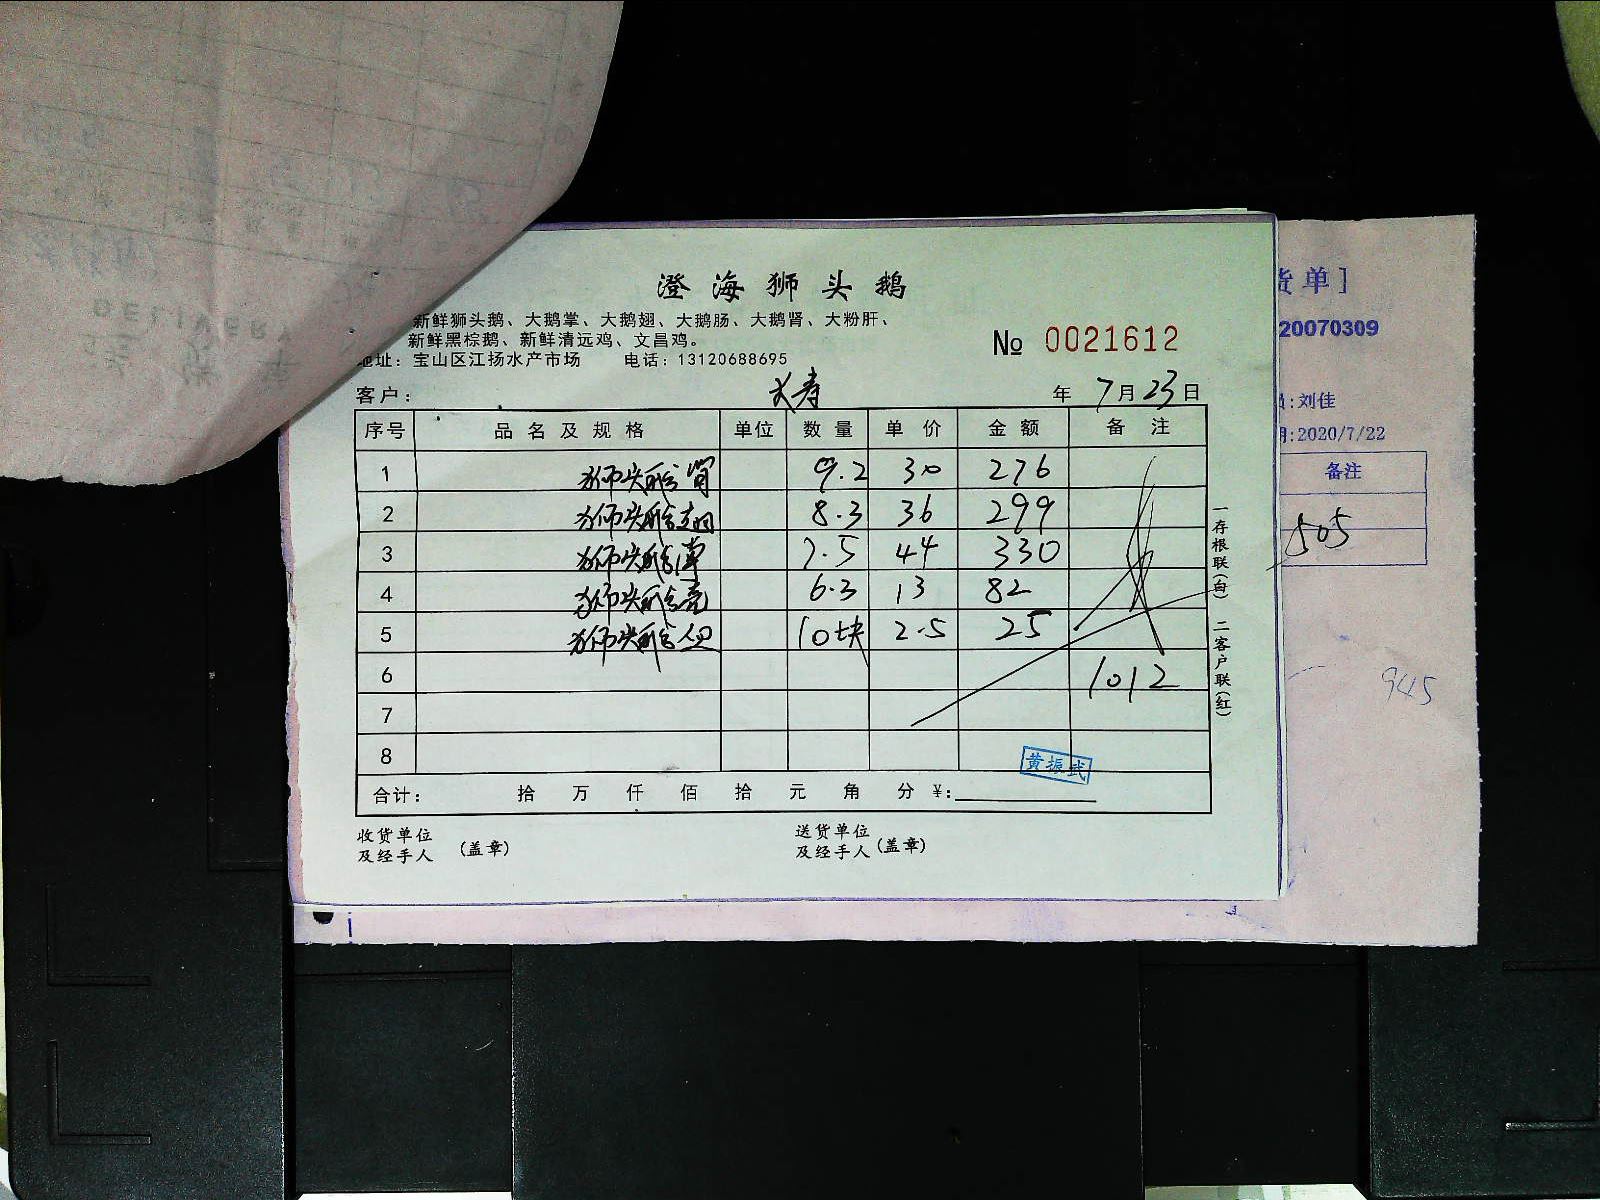 澄海狮头鹅
新鲜狮头鹅、大鹅掌、大鹅翅、大鹅肠、大鹅肾、大粉肝、
新鲜黑棕鹅、新鲜清远鸡、文昌鸡。
地址：宝山区江扬水产市场 电话：13120688695
№ 0021612
客户： 年 7月23日
序号 品名及规格 单位 数量 单价 金额 备注
1 狮头鹅 9.2 30 276
2 狮头鹅 8.3 36 299
3 狮头鹅 7.5 44 330
4 狮头鹅 6.3 13 82
5 狮头鹅 10块 2.5 25
6 1012
7
8
黄振武
合计： 拾 万 仟 佰 拾 元 角 分 ¥:
收货单位
及经手人 (盖章)
送货单位
及经手人 (盖章)
一存根联(白) 二客户联(红)
货单]
20070309
员:刘佳
期:2020/7/22
备注
505
945
DELIVER